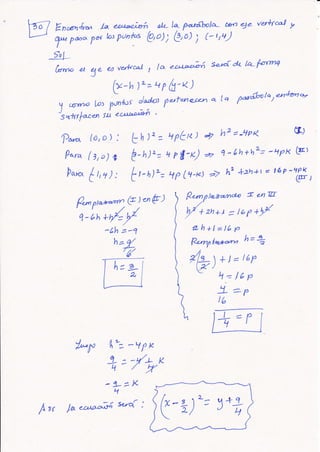 30 Encontrar la ecuación de la parábola con eje vertical y
que pasa por los puntos (0,0); (3,0); (-1,4)
Sol
Como el eje es vertical, la ecuación será de la forma
(x-h)²=4p(y-k)
y como los puntos dados pertenecen a la parábola, entonces
satisfacen su ecuación.
Para (0,0): (-h)²=4p(-k) ⇒ h²=-4pk (I)
Para (3,0): (3-h)²=4p(-k) ⇒ 9-6h+h²=-4pk (II)
Para (-1,4): (-1-h)²=4p(4-k) ⇒ h²+2h+1=16p-4pk (III)
Remplazamos (I) en (II)
9-6h+h²=h²
-6h=-9
h=9/6
h=3/2
Remplazando I en III
h²+2h+1=16p+h²
2h+1=16p
Remplazamos h=3/2
2(3/2)+1=16p
4=16p
4/16=p
1/4=p
Luego h²=-4pk
9/4=-4·1/4 k
-9/4=k
Así la ecuación será: (x-3/2)²=y+9/4